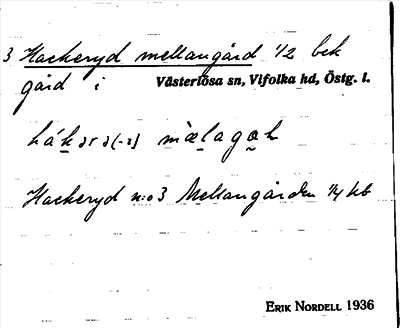 3 Hackeryd mellangård 1/2 bek
gård i Västerlösa sn, Vifolka hd, Östg. l.
hákərə(-ɛ) mælagoh
Hackeryd n:o 3 Mellangården 1/4 kb
ERIK NORDELL 1936